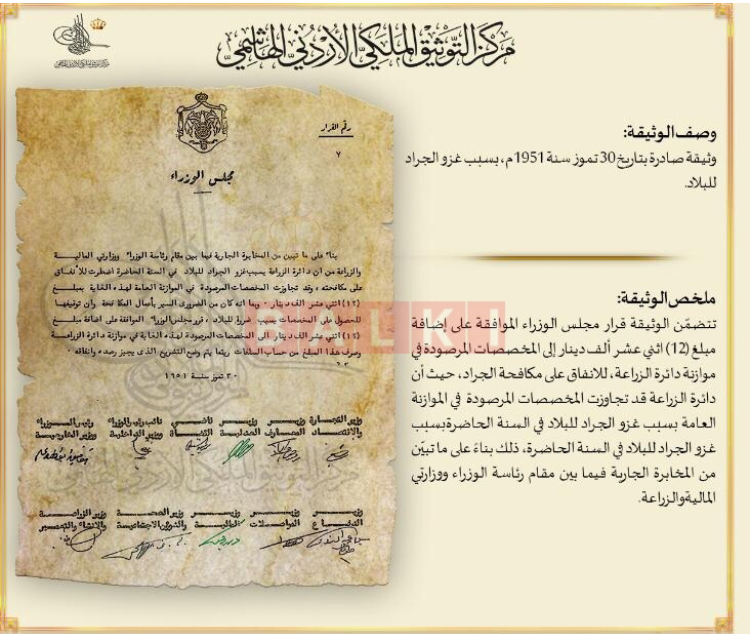 مركز التوثيق الملكي الأردني الهاشمي
وصف الوثيقة:
وثيقة صادرة بتاريخ 30 تموز سنة 1951م، بسبب غزو الجراد
للبلاد.
ملخص الوثيقة:
تتضمّن الوثيقة قرار مجلس الوزراء الموافقة على إضافة
مبلغ (12) اثني عشر ألف دينار إلى المخصصات المرصودة في
موازنة دائرة الزراعة، للانفاق على مكافحة الجراد، حيث أن
دائرة الزراعة قد تجاوزت المخصصات المرصودة في الموازنة
العامة بسبب غزو الجراد للبلاد في السنة الحاضرة بسبب
غزو الجراد للبلاد في السنة الحاضرة، ذلك بناءً على ما تبيّن
من المخابرة الجارية فيما بين مقام رئاسة الوزراء ووزارتي
المالية والزراعة.
رقم القرار
٧
مجلس الوزراء
بناء على ما تبين من المخابرة الجارية فيما بين مقام رئاسة الوزراء ووزارتي المالية
والزراعة من ان دائرة الزراعة بسبب غزو الجراد للبلاد في السنة الحاضرة اضطرت للانفاق
على مكافحته، وقد تجاوزت المخصصات المرصودة في الموازنة العامة لهذه الغاية بمبلغ
(١٢) اثني عشر الف دينار. وبما انه كان من الضروري السير بأعمال المكافحة وان توقيفها
للحصول على المخصصات يسبب ضررا للبلاد، قرر مجلس الوزراء الموافقة على اضافة مبلغ
(١٢) اثني عشر الف دينار الى المخصصات المرصودة لهذه الغاية في موازنة دائرة الزراعة
وصرف هذا المبلغ من حساب السلفات ريثما يتم وضع التشريع الذي يجيز رصده وانفاقه.
٣٠ تموز سنة ١٩٥١
وزير التجارة وزير وزير قاضي نائب رئيس الوزراء رئيس الوزراء
والاقتصاد المعارف العدلية القضاة ووزير الداخلية ووزير الخارجية
وزير وزير وزير وزير الصحة وزير الزراعة
الدفاع المواصلات المالية والشؤون الاجتماعية والانشاء والتعمير
BALKI